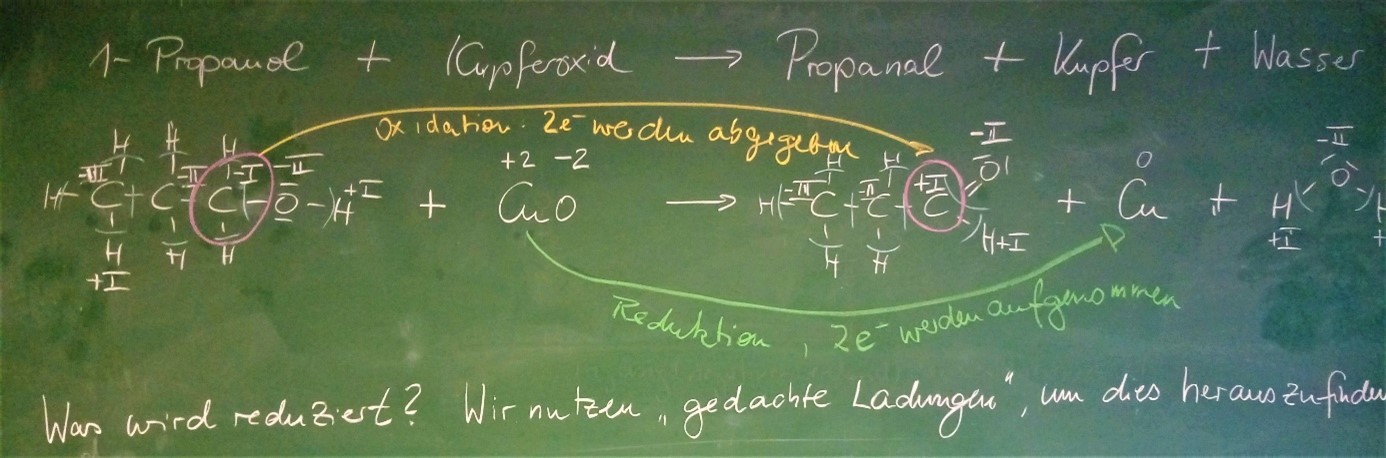 1-Propanol + Kupferoxid → Propanal + Kupfer + Wasser
Oxidation. 2e⁻ werden abgegeben
H H H -I -II +2 -2 H H -II 0 -II
H -III C -II C C O H +I + CuO → H -III C -II C +I C O + Cu + H O H
H H H H H H +I +I
+I
Reduktion, 2e⁻ werden aufgenommen
Was wird reduziert? Wir nutzen „gedachte Ladungen", um dies herauszufinden